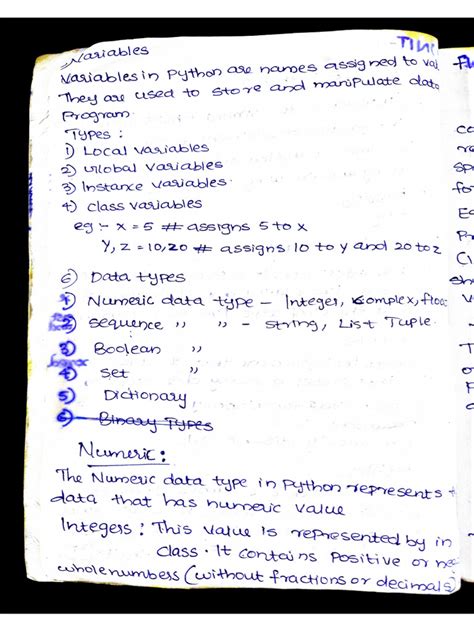 Variables
Variables in Python are names assigned to val
They are used to store and manipulate data
Program.
Types :
1) Local variables
2) Global variables
3) Instance variables.
4) class variables
eg :- x = 5 # assigns 5 to x
Y, z = 10,20 # assigns 10 to y and 20 to z
6) Data types
1) Numeric data type - Integer, complex, float
2) sequence " " - string, List Tuple.
3) Boolean "
4) set "
5) Dictionary
6) Binary Types
Numeric :
The Numeric data type in python represents t
data that has numeric value
Integers : This value is represented by in
class. It contains positive or ne
whole numbers (without fractions or decimals)